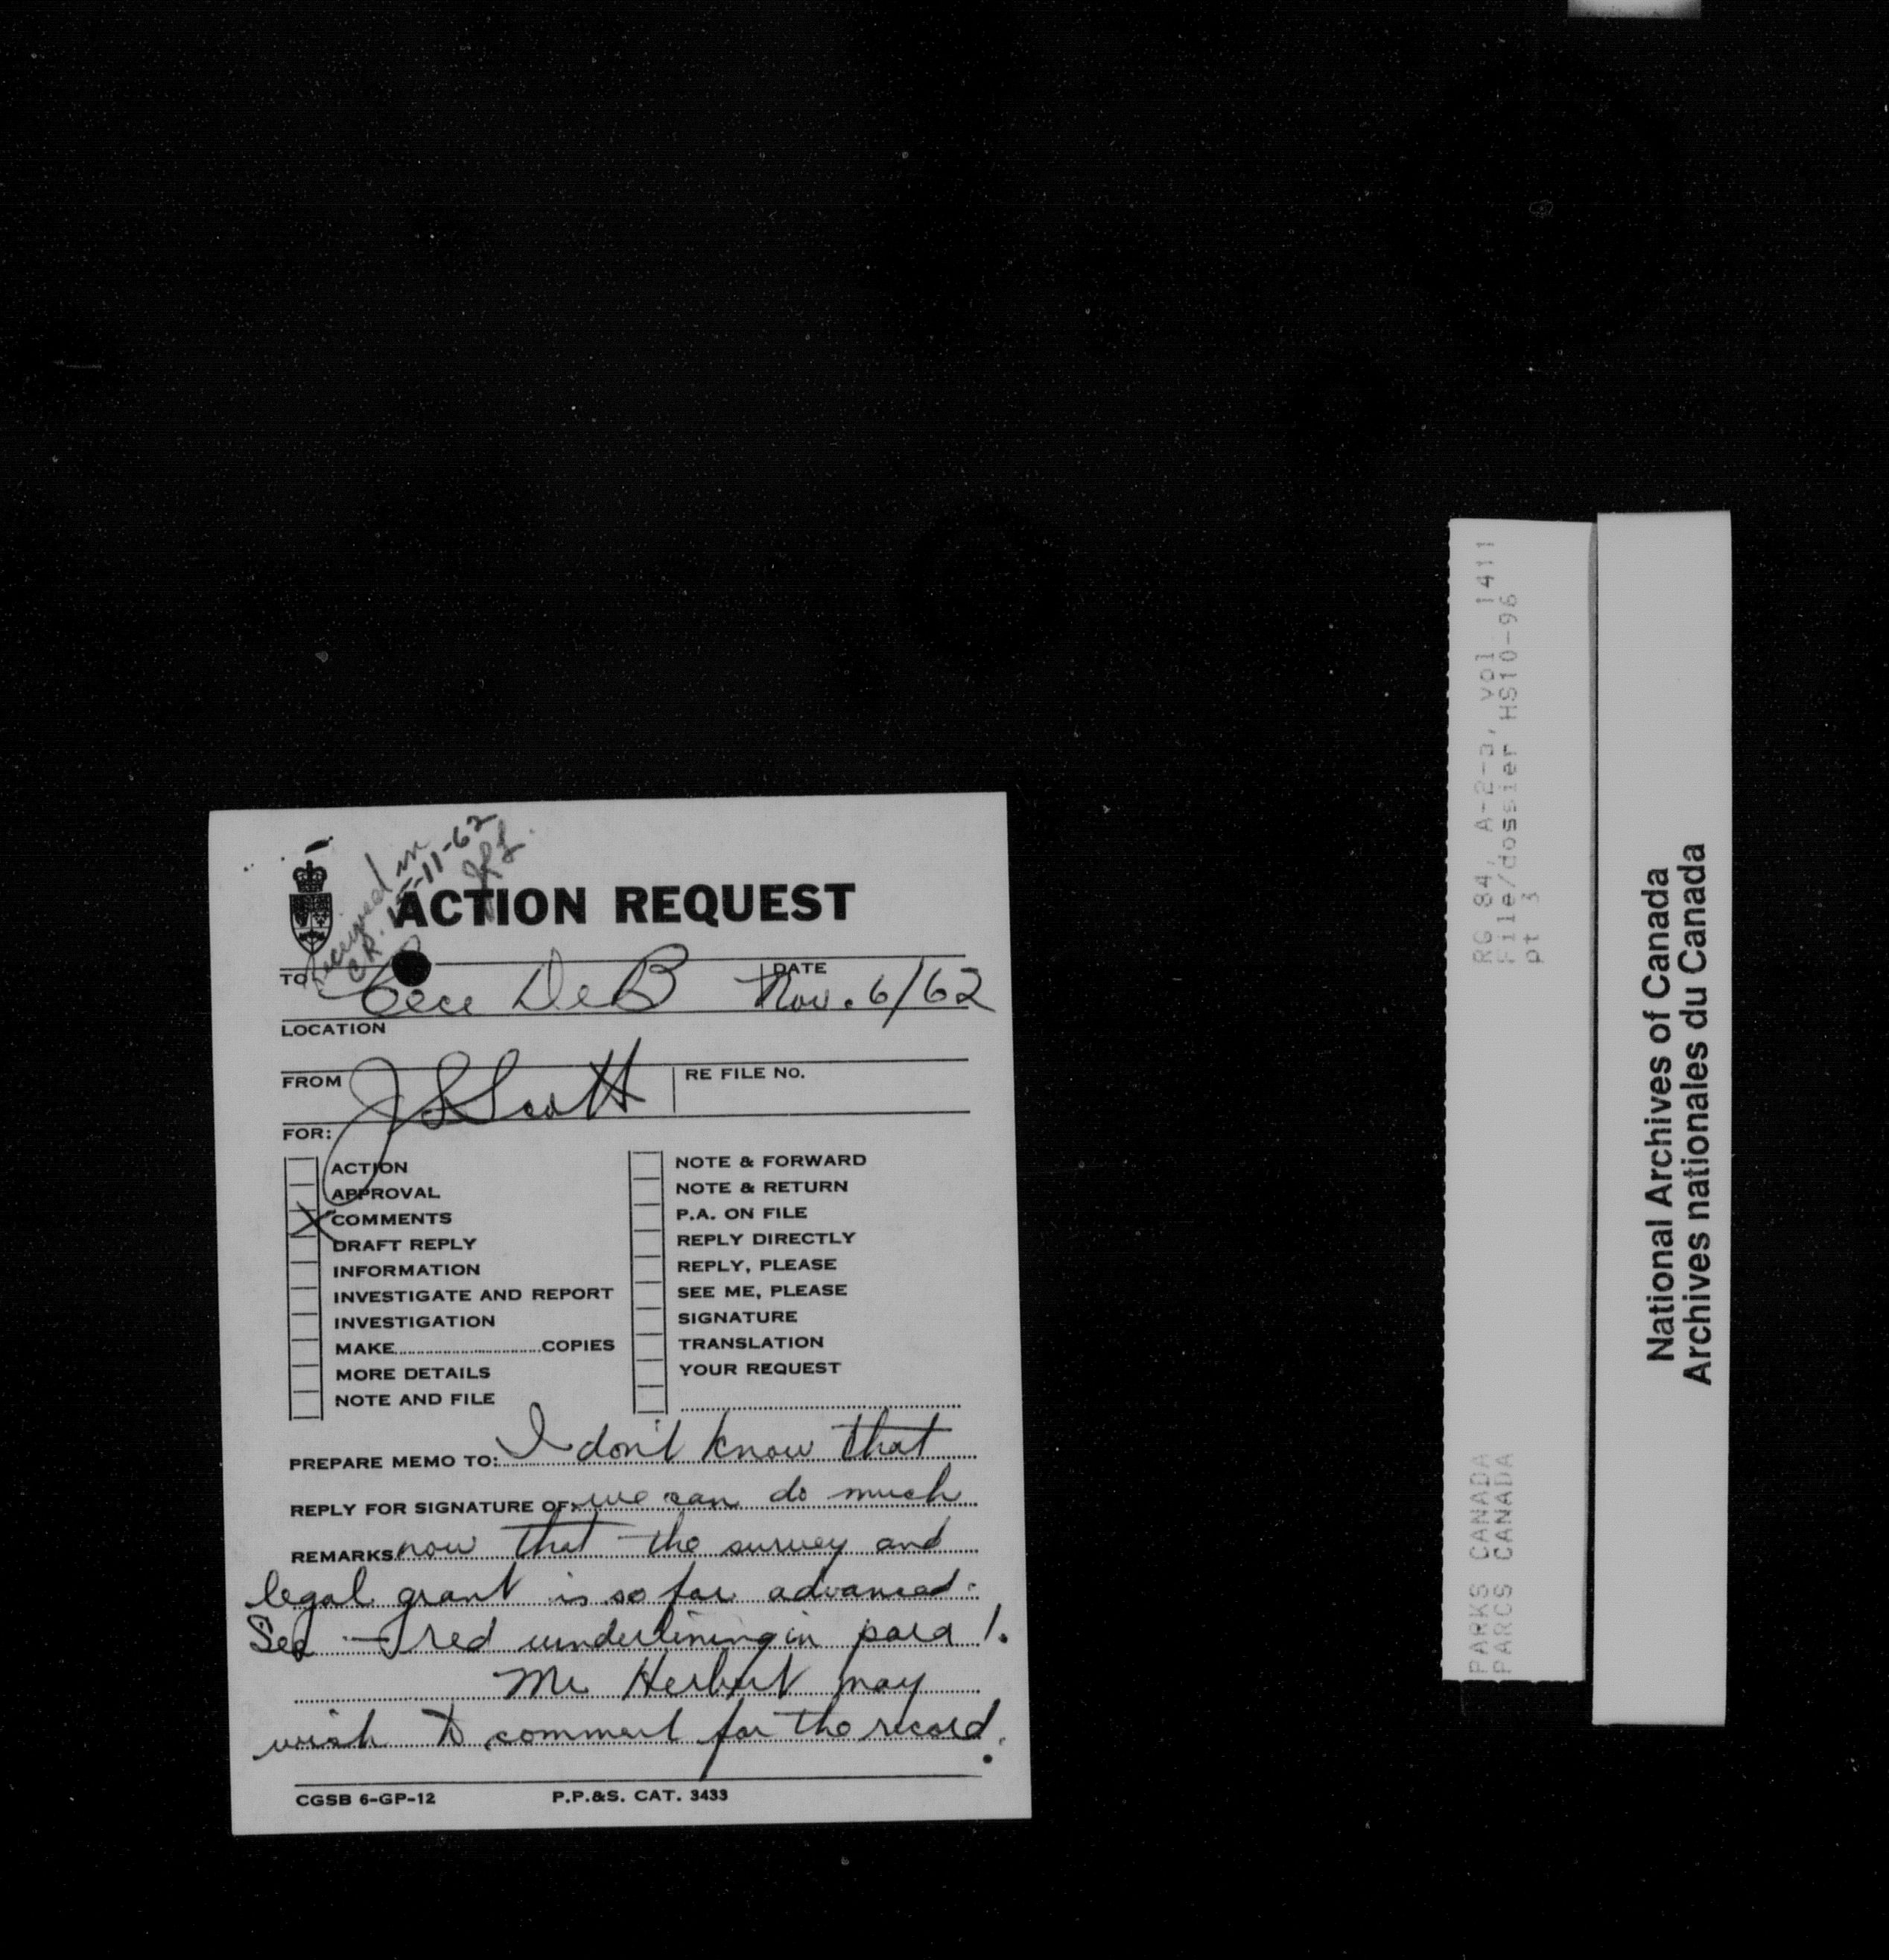 Received in
C.R. 15-11-62
ACTION REQUEST
TO Cece DeB DATE Nov. 6/62
LOCATION
FROM J Scott RE FILE NO.
FOR:
ACTION
APPROVAL
X COMMENTS
DRAFT REPLY
INFORMATION
INVESTIGATE AND REPORT
INVESTIGATION
MAKE COPIES
MORE DETAILS
NOTE AND FILE
NOTE & FORWARD
NOTE & RETURN
P.A. ON FILE
REPLY DIRECTLY
REPLY, PLEASE
SEE ME, PLEASE
SIGNATURE
TRANSLATION
YOUR REQUEST
PREPARE MEMO TO: I don't know that
REPLY FOR SIGNATURE OF: we can do much
REMARKS now that the survey and
legal grant is so far advanced.
See — red underlining in para 1.
Mr Herbert may
wish to comment for the record.
CGSB 6-GP-12 P.P.&S. CAT. 3433
RG 84, A-2-a, vol 1411
File/dossier HS10-96
pt 3
PARKS CANADA
PARCS CANADA
National Archives of Canada
Archives nationales du Canada